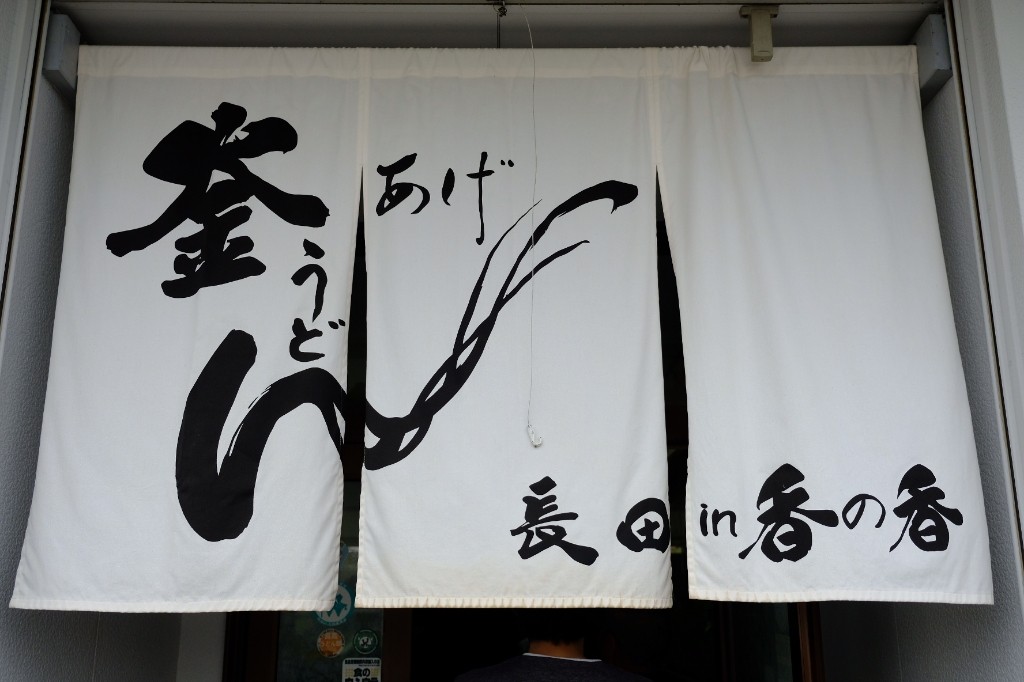 釜あげ
うどん
長田in香の香
食の